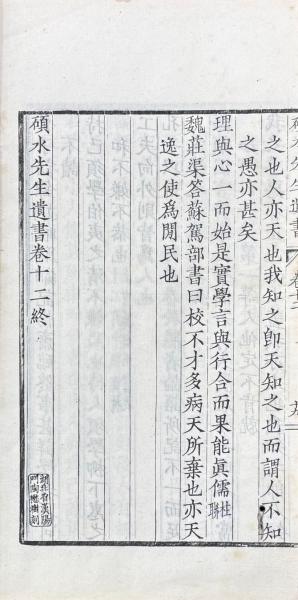 之也人亦天也我知之卽天知之也而謂人不知
之愚亦甚矣
理與心一而始是實學言與行合而果能眞儒柱聯
魏莊渠答蘇駕部書曰校不才多病天所棄也亦天
逸之使爲閒民也
碩水先生遺書卷十二終